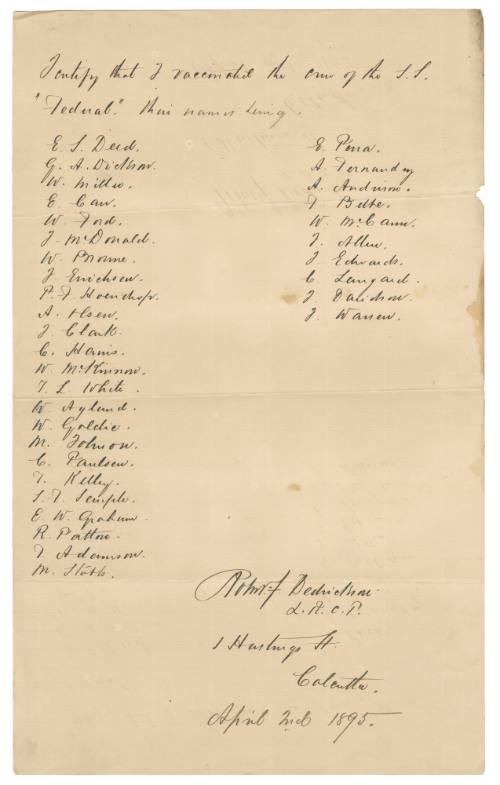 I certify that I vaccinated the crew of the S.S.
"Federal" their names being.
E. S. Deed.
G. A. Dickson.
W. Miller.
E. Carr.
W. Ford.
J. McDonald.
W. Browne.
J. Erichsen.
P. F.
A. Olsen.
J. Clark.
C. Harris.
W. McKinnon.
T. L. White.
W. Ayland.
W. Goldie.
M. Johnson.
C. Paulsen.
T. Kelly.
S. T. Semple.
E. W. Graham
R. Patton.
T. Adamson.
M. Stott.
E. Pena.
A. Fernandez
A. Anderson.
T. Bette.
W. McCann.
T. Allen.
J. Edwards.
C. Langard.
J. Davidson.
J. Warren.
Robt. F Dedrickson
L.R.C.P.
1 Hastings St.
Calcutta.
April 2nd 1895.